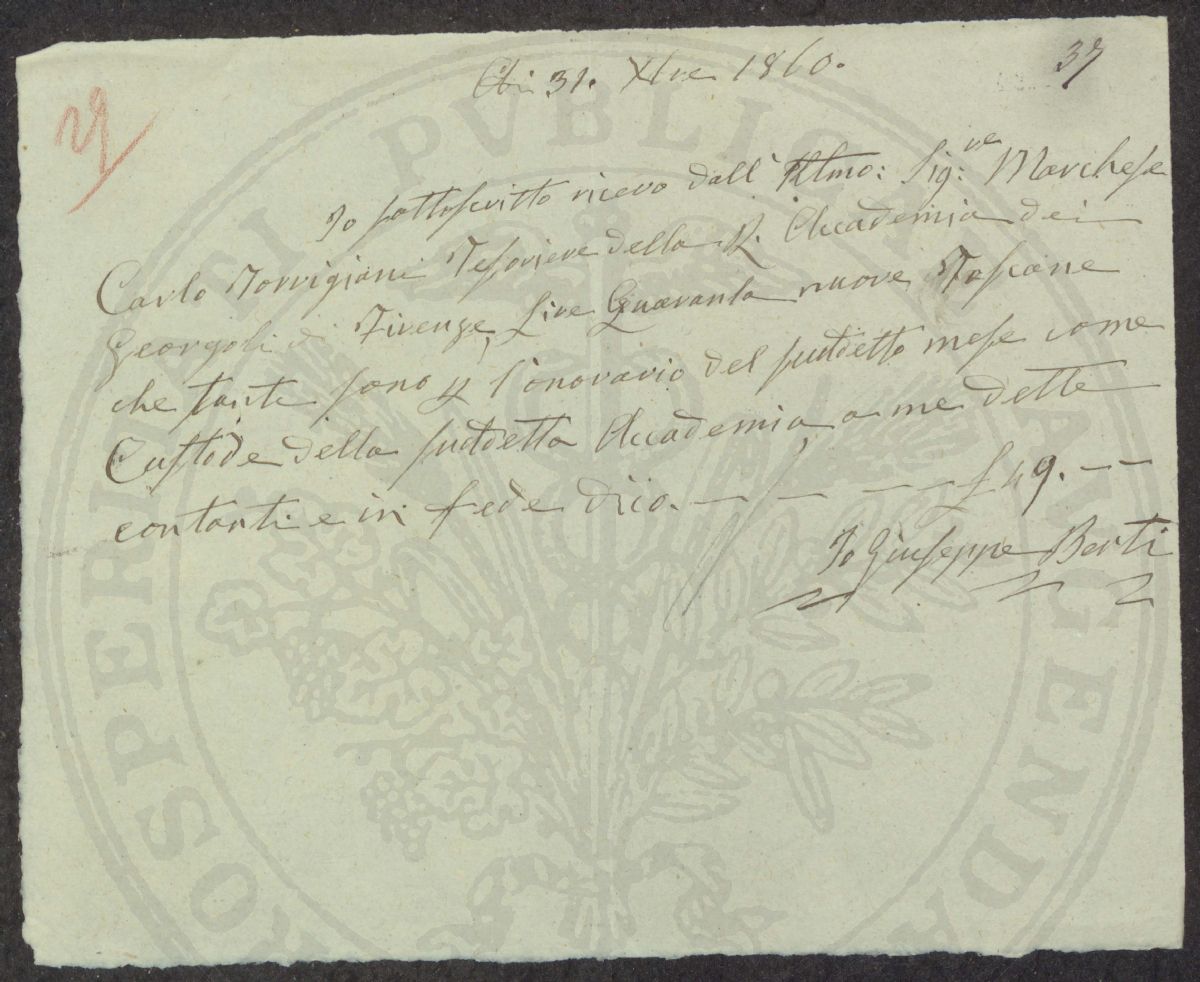 37
29
Adi 31. Xbre 1860.
Io sottoscritto ricevo dall' Illmo: Sig:re Marchese
Carlo Torrigiani Tesoriere della R. Accademia dei
Georgofi di Firenze, Lire Quaranta nuove Toscane
che tante sono p l'onorario del suddetto mese come
Custode della suddetta Accademia a me dette
contanti e in fede dico. — — — — £ 49. — —
Io Giuseppe Berti
PROSPERITATI PVBLICAE AVGENDAE